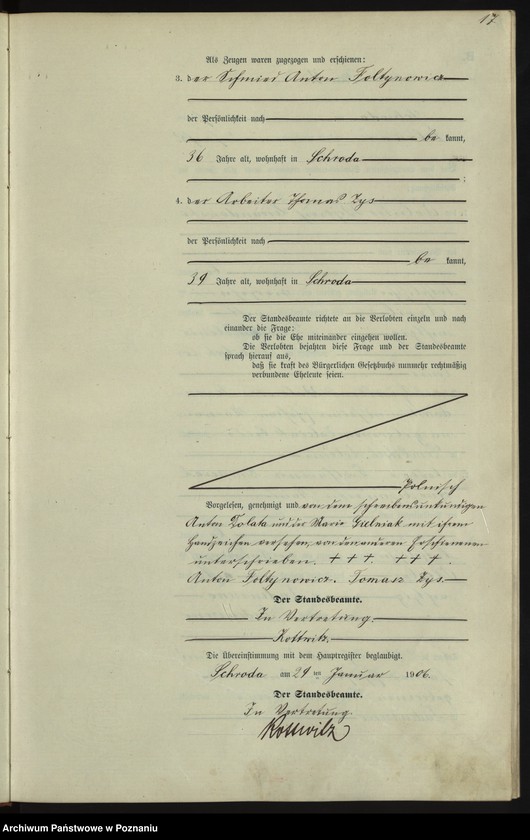 17
Als Zeugen waren zugezogen und erschienen:
3. der Schmied Anton Foltynowicz
der Persönlichkeit nach
be kannt,
36 Jahre alt, wohnhaft in Schroda
;
4. der Arbeiter Thomas Zys
der Persönlichkeit nach
be kannt,
39 Jahre alt, wohnhaft in Schroda
Der Standesbeamte richtete an die Verlobten einzeln und nach
einander die Frage:
ob sie die Ehe miteinander eingehen wollen.
Die Verlobten bejahten diese Frage und der Standesbeamte
sprach hierauf aus,
daß sie kraft des Bürgerlichen Gesetzbuchs nunmehr rechtmäßig
verbundene Eheleute seien.
Polnisch
Vorgelesen, genehmigt und von dem schreibensunkundigen
Anton Zolata und der Marie Gielniak mit ihrem
Handzeichen versehen, von den anderen Erschienenen
unterschrieben. + + +. + + +.
Anton Foltynowicz. Tomasz Zys.
Der Standesbeamte.
In Vertretung.
Kottwitz.
Die Übereinstimmung mit dem Hauptregister beglaubigt.
Schroda am 29 ten Januar 1906.
Der Standesbeamte.
In Vertretung.
Kottwitz
Archiwum Państwowe w Poznaniu